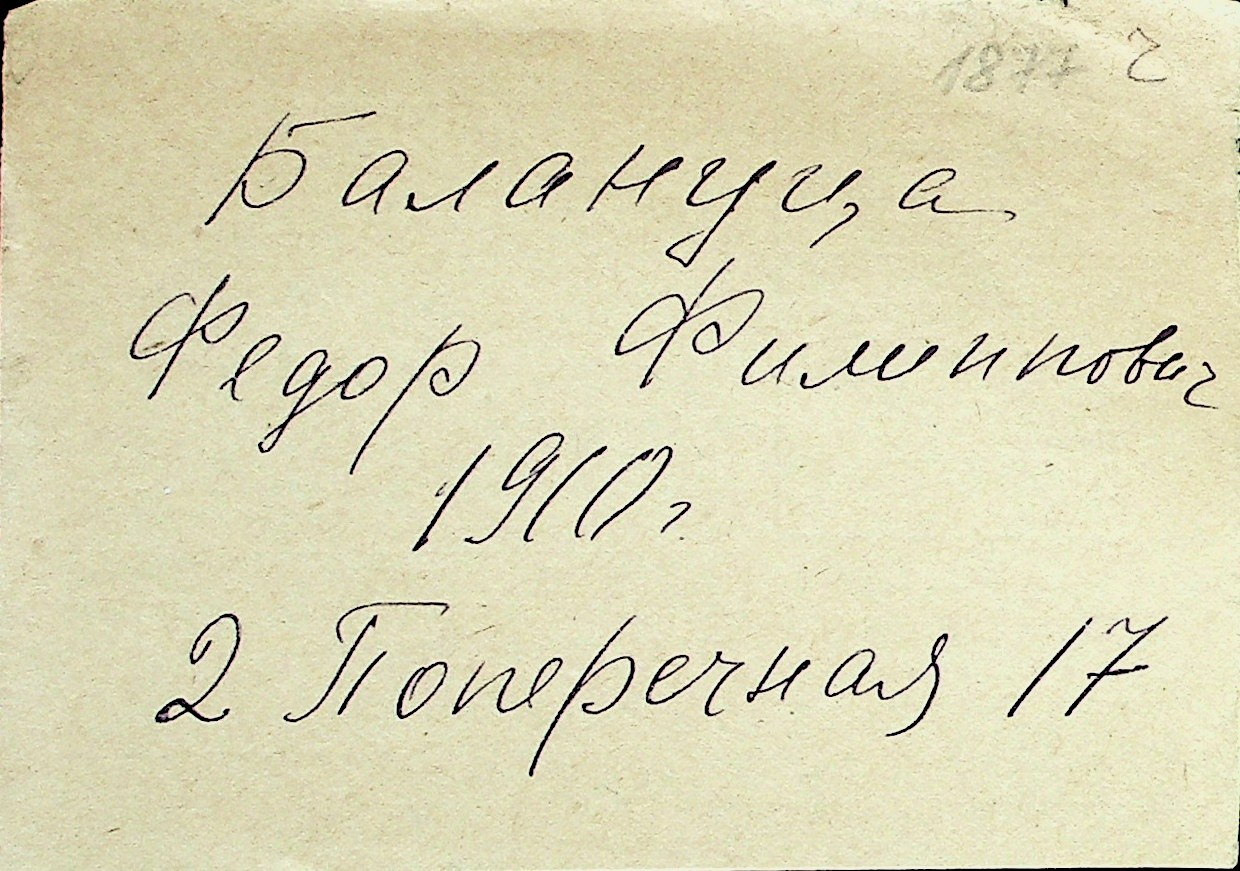 1877 г
Балануца
Федор Филиппович
1910 г
2 Поперечная 17